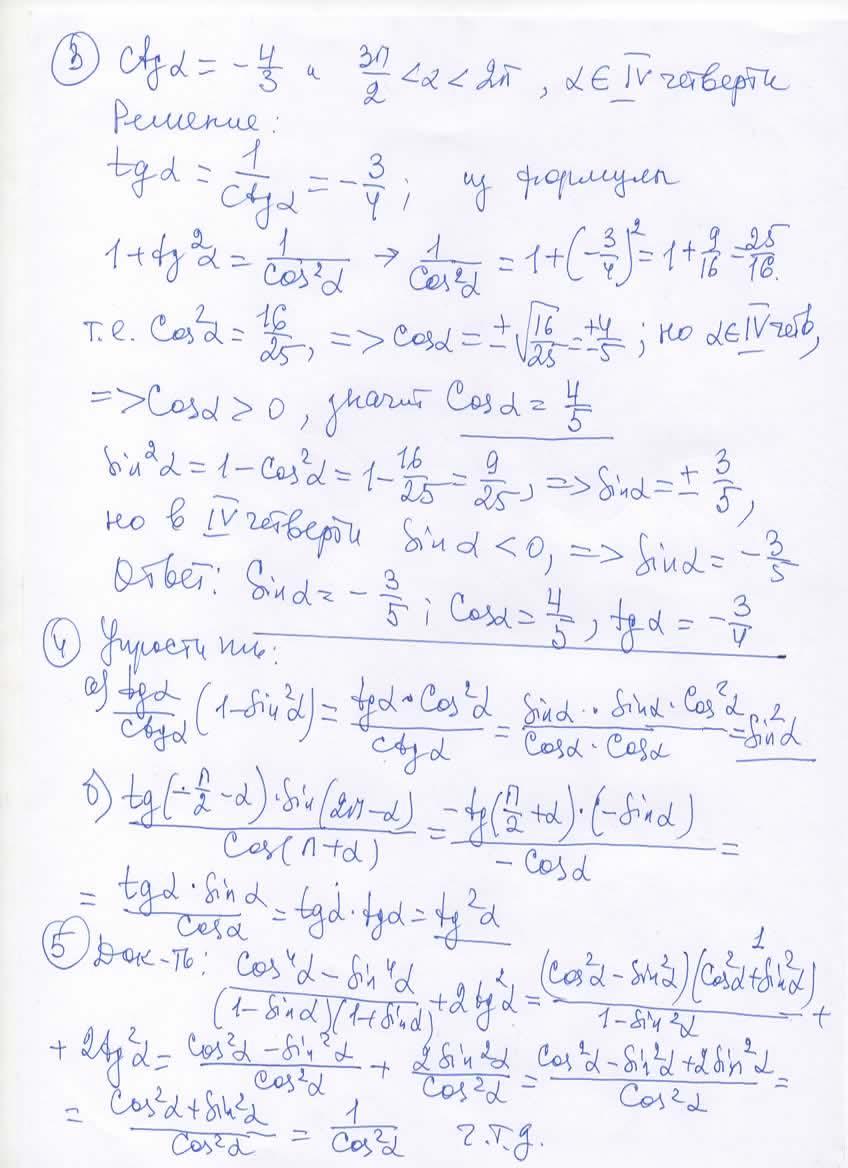 ③ Ctgα = -4/3 и 3π/2 < α < 2π, α ∈ IV четверти
Решение:
tgα = 1/Ctgα = -3/4; из формулы
1+tg²α = 1/Cos²α → 1/Cos²α = 1+(-3/4)² = 1+9/16 = 25/16.
т.е. Cos²α = 16/25, => Cosα = ±√16/25 = ±4/5; но α ∈ IV четв,
=> Cosα > 0, значит Cosα = 4/5
Sin²α = 1-Cos²α = 1-16/25 = 9/25, => Sinα = ± 3/5,
но в IV четверти Sinα < 0, => Sinα = -3/5
Ответ: Sinα = -3/5; Cosα = 4/5, tgα = -3/4
④ Упростить:
а) tgα/Ctgα (1-Sin²α) = tgα·Cos²α/Ctgα = Sinα·Sinα·Cos²α/Cosα·Cosα = Sin²α
б) tg(-π/2-α)·Sin(2π-α)/Cos(π+α) = -tg(π/2+α)·(-Sinα)/-Cosα =
= tgα·Sinα/Cosα = tgα·tgα = tg²α
⑤ Док-ть: Cos⁴α-Sin⁴α/(1-Sinα)(1+Sinα) + 2tg²α = (Cos²α-Sin²α)(Cos²α+Sin²α) 1/1-Sin²α +
+ 2tg²α = Cos²α-Sin²α/Cos²α + 2Sin²α/Cos²α = Cos²α-Sin²α+2Sin²α/Cos²α =
= Cos²α+Sin²α/Cos²α = 1/Cos²α ч.т.д.